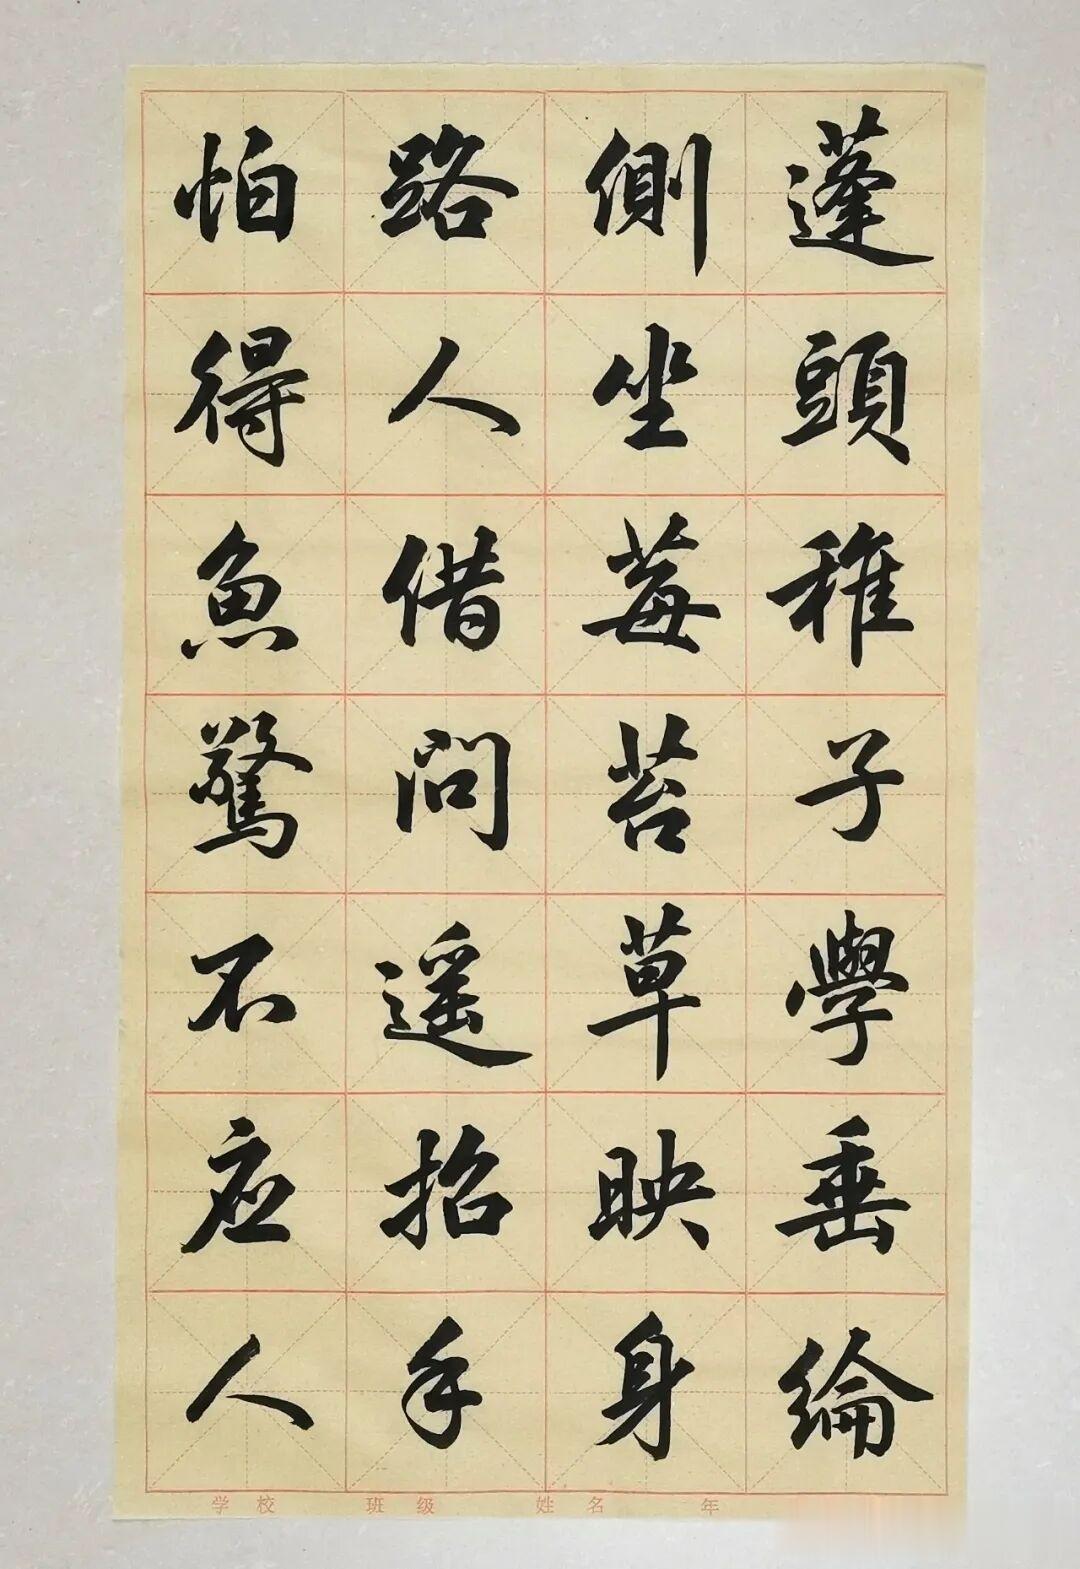 蓬頭稚子學垂綸
側坐莓苔草映身
路人借问遥招手
怕得魚驚不应人
学校 班级 姓名 年